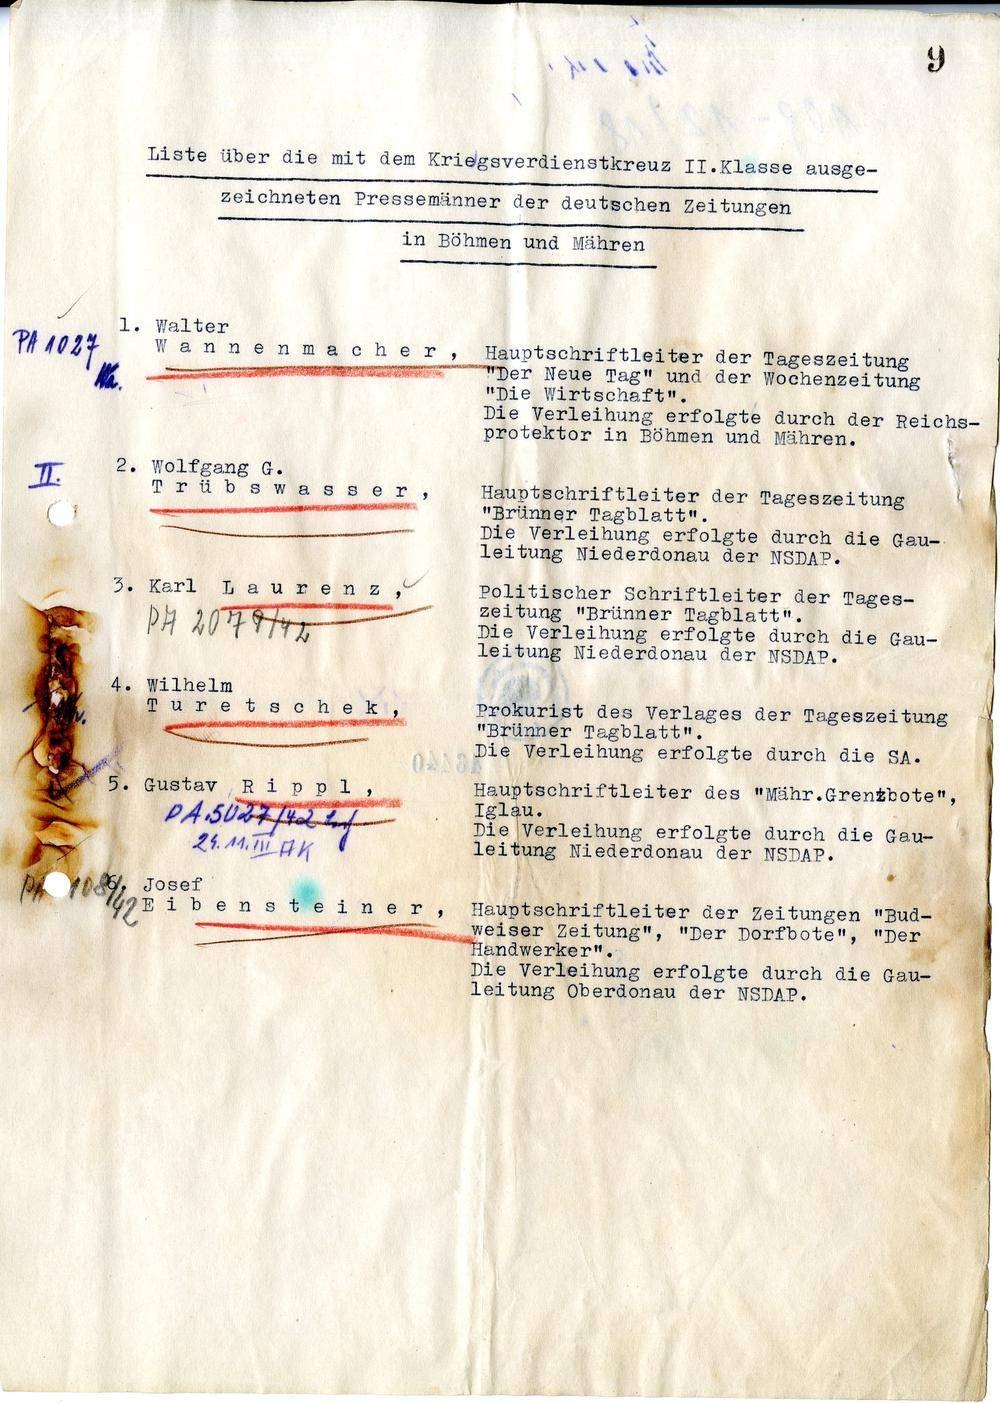 9
Liste über die mit dem Kriegsverdienstkreuz II.Klasse ausge-
zeichneten Pressemänner der deutschen Zeitungen
in Böhmen und Mähren
PA 1027
1. Walter
W a n n e n m a c h e r ,
Hauptschriftleiter der Tageszeitung
"Der Neue Tag" und der Wochenzeitung
"Die Wirtschaft".
Die Verleihung erfolgte durch der Reichs-
protektor in Böhmen und Mähren.
II.
2. Wolfgang G.
T r ü b s w a s s e r ,
Hauptschriftleiter der Tageszeitung
"Brünner Tagblatt".
Die Verleihung erfolgte durch die Gau-
leitung Niederdonau der NSDAP.
3. Karl L a u r e n z ,
PA 2079/42
Politischer Schriftleiter der Tages-
zeitung "Brünner Tagblatt".
Die Verleihung erfolgte durch die Gau-
leitung Niederdonau der NSDAP.
4. Wilhelm
T u r e t s c h e k ,
Prokurist des Verlages der Tageszeitung
"Brünner Tagblatt".
Die Verleihung erfolgte durch die SA.
5. Gustav R i p p l ,
PA.5027/42
24.11.III AK
Hauptschriftleiter des "Mähr.Grenzbote",
Iglau.
Die Verleihung erfolgte durch die Gau-
leitung Niederdonau der NSDAP.
6. Josef
E i b e n s t e i n e r ,
Hauptschriftleiter der Zeitungen "Bud-
weiser Zeitung", "Der Dorfbote", "Der
Handwerker".
Die Verleihung erfolgte durch die Gau-
leitung Oberdonau der NSDAP.